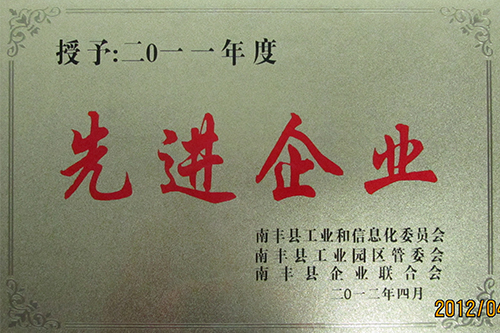 授予:二0一一年度
先进企业
南丰县工业和信息化委员会
南丰县工业园区管委会
南丰县企业联合会
二0一二年四月
2012/04